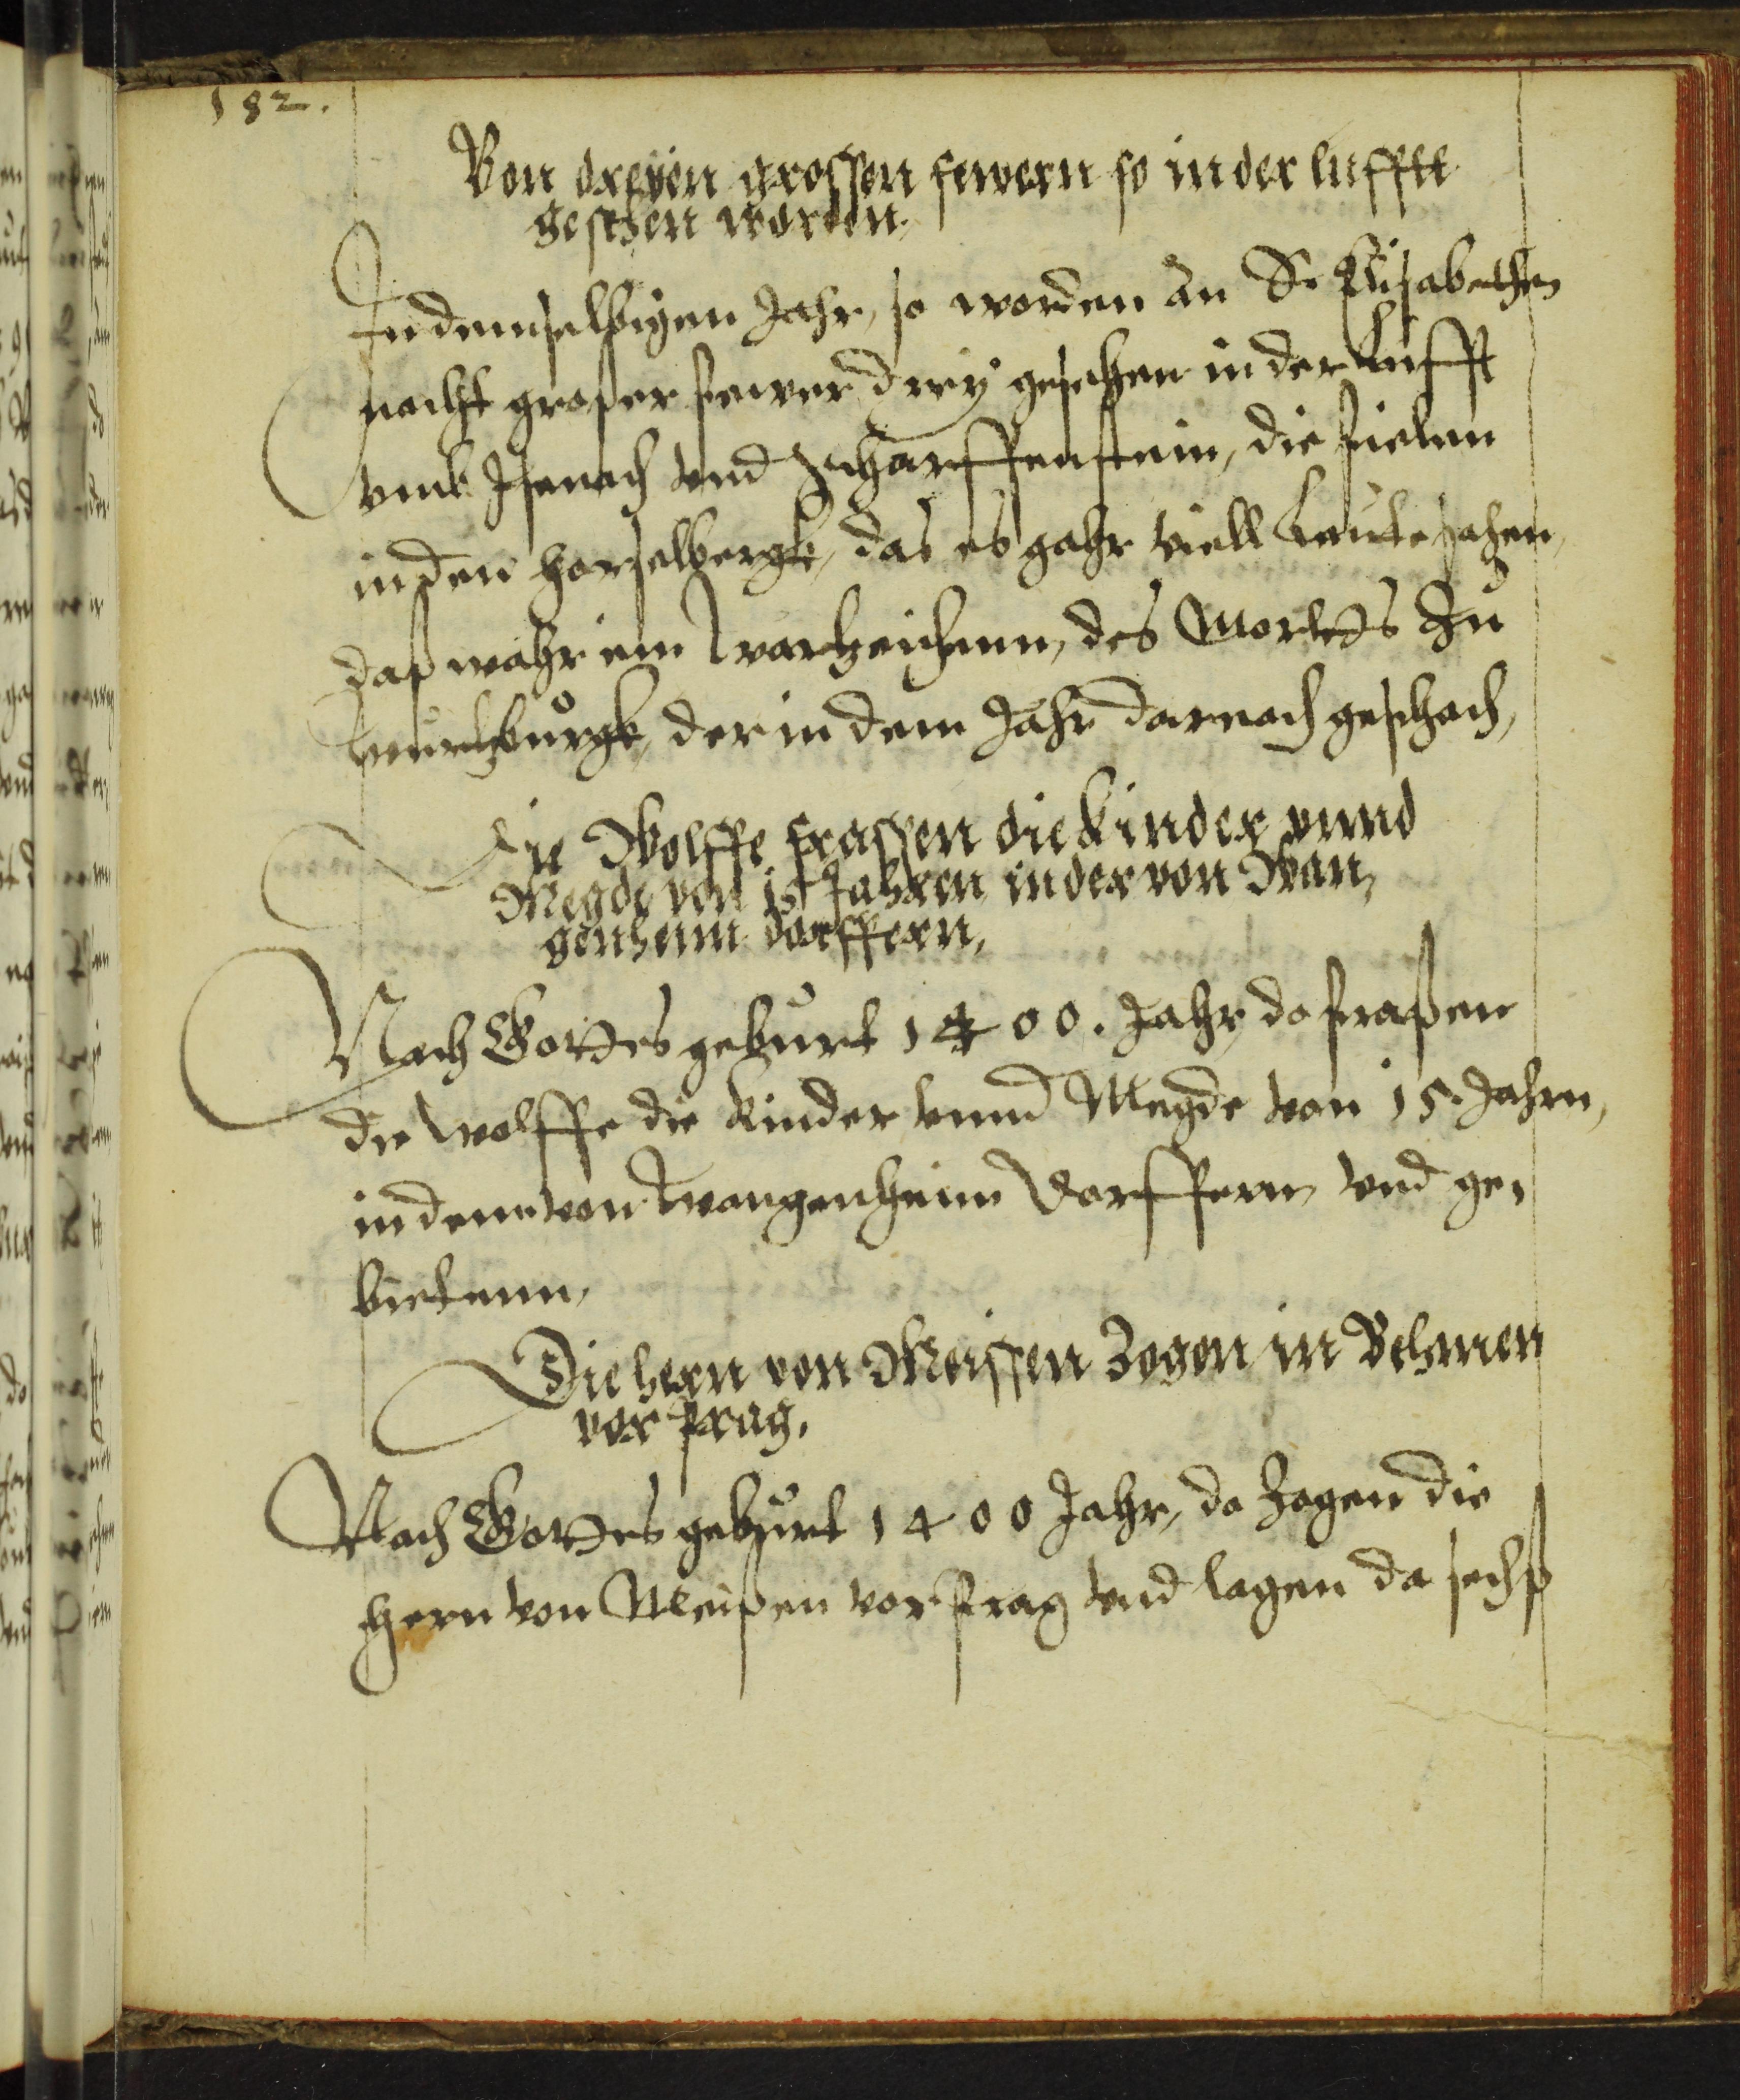 182.
Von dreyen grossen fewern so in der lufftt
gesehen worden.
In demselbigen Jahr, so worden an S. Elisabethen
nacht großer fewer drey gesehen in der Lufft
vmb Isenach vnd Scharffenstein, die fielen
in den Horselbergk, das es gahr viell Leute sahen,
daß wahr ein warzeichenn, des Mordts zu
Wurtzburgk, der in dem Jahr darnach geschach,
Die Wolffe frassen die Kinder vnnd
Megde von 15 Jahren in der von Wan,
genheim dorffern,
Nach Gottes geburt 1400. Jahr, do fraßen
die wolffe die Kinder vnnd Megde von 15. Jahrn,
in denn von Wangenheim Dorffern vnd ge,
bietenn,
Die hern von Meissen Zogen in Behmen
vor prag.
Nach Gottes geburt 1400 Jahr, da Zogen die
Hern von Meißen vor Prag vnd lagen da sechß